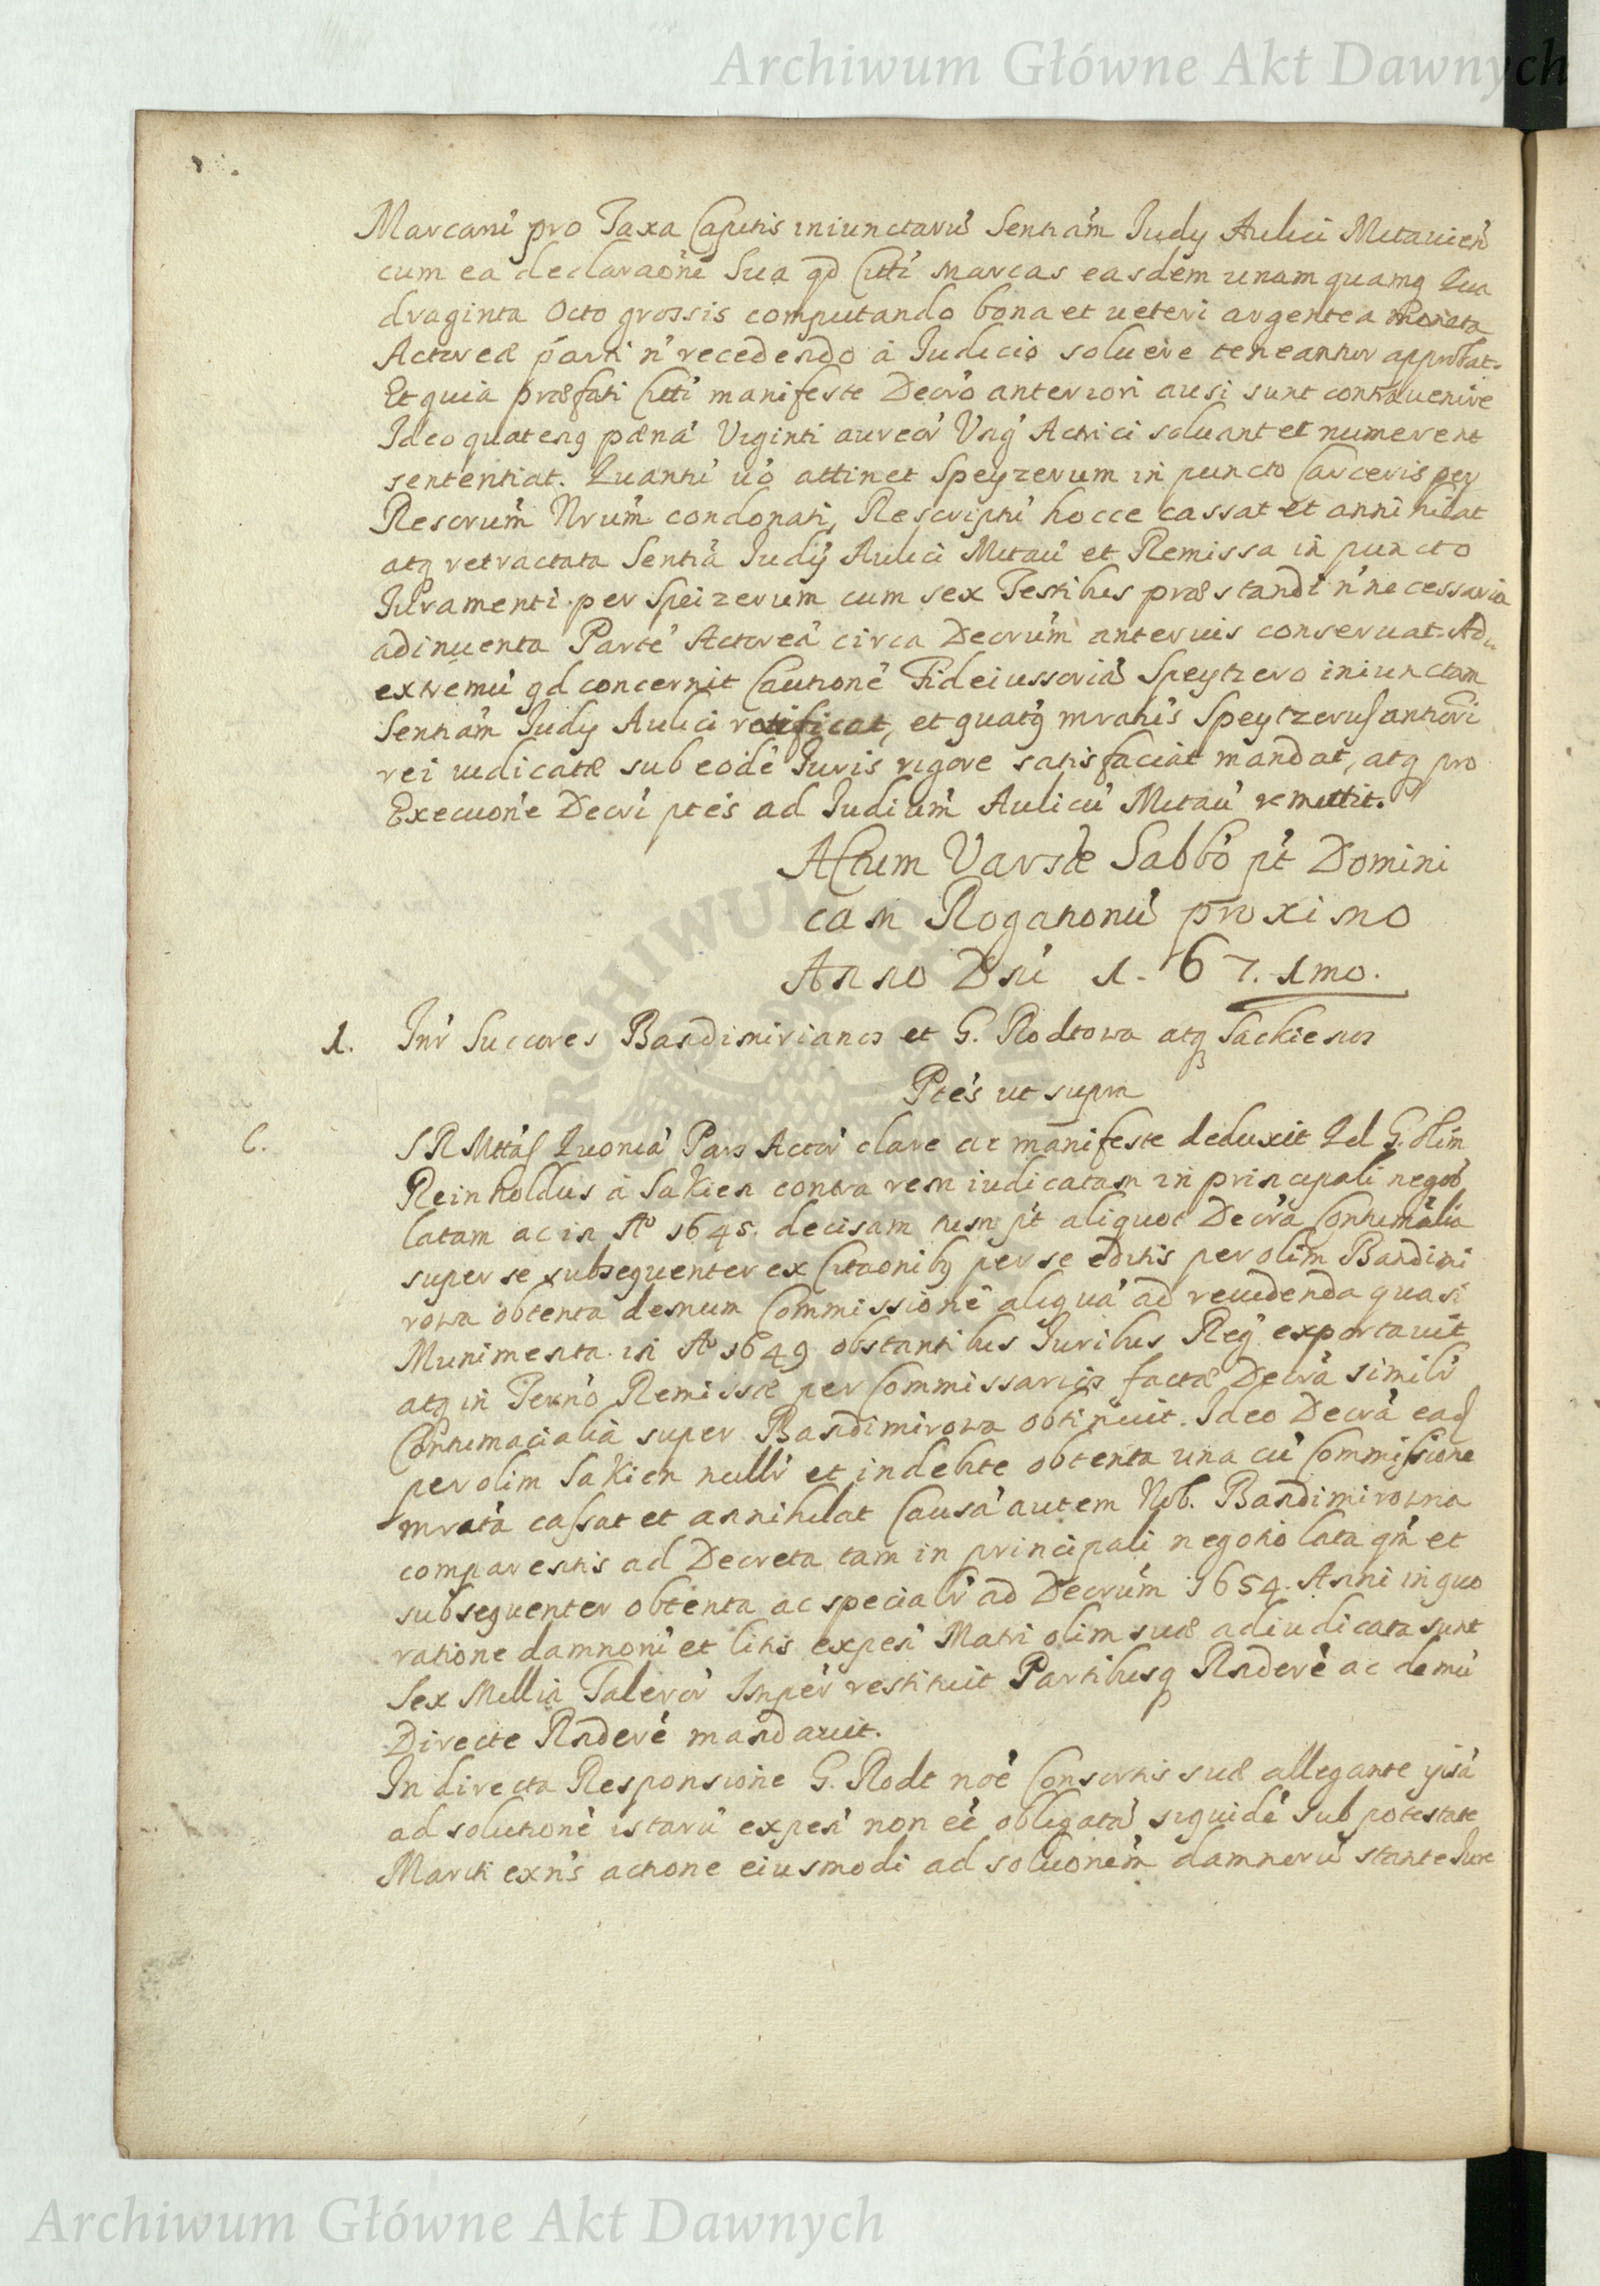 Archiwum Główne Akt Dawnych
Marcarũ pro Taxa Capitis iniunctarũ Sentiam̃ Iudy Aulici Mitauieñ
cum ea declaraõne Sua qd Citti marcas easdem unam quamq Qua
draginta Octo grossis computando bona et ueteri argentea moneta
Actoreæ parti ñ recedendo à Iudicio soluere teneantur approbat.
Et quia præfati Citti manifeste Decrõ anteriori ausi sunt contrauenire
Ideo quatenq pænã Viginti aureor̃ Vng̃ Actrici soluant et numerent
sententiat. Quantũ uõ attinet Speyzerum in puncto Carceris per
Rescrum̃ Nrum̃ condonati, Rescriptũ hocce cassat et annihilat
atq retractata Sentiã Iudÿ Aulici Mitaũ et Remissa in puncto
Iuramenti per Speizerum cum sex Testibus præstandi ñ necessario
adinuenta Partẽ Actoreã circa Decrum̃ anterius conseruat. Ad
extremũ qd concernit Cautionẽ Fideiussoriã Speytzero iniunctam
Sentiam̃ Iudy Aulici ratificat, et quatq̃ mratis Speytzerus anteriori
rei iudicatæ sub eodẽ Iuris rigore satisfaciat mandat, atq pro
Execuõne Decri ptẽs ad Iudium̃ Aulicũ Mitaũ remittit.
Actum Varsæ Sabbõ pt̃ Domini
cam Rogationũ proximo
Anno Dni 1. 67. 1mo.
1. Intr̃ Succores Bandimirianos et G. Rodtowa atq Sackienos
Ptẽs ut supra
C. S R Mttas Quoniã Pars Actor̃ clare ac manifeste deduxit Qd G. olim
Reinholdus à Sakien contra rem iudicatam in principali negõ
latam ac in Aº 1645. decisam tum pt̃ aliquot Decrã Contumãlia
super se subsequenter ex Citaonibq per se editis per olim Bandimi
rowa obtenta demum Commissionẽ aliquã ad reuidenda quasi
Munimenta in Aº 1649 obstantibus Iuribus Regq exportauit
atq in Termõ Remissæ per Commissarios factæ Decrã similr̃
Contumacialia super Bandimirowa obtinuit. Ideo Decrã ead
per olim Sakien nullr̃ et indebite obtenta una cũ Commissione
mratã cassat et annihilat Causã autem Nob. Bandimirowna
comparentis ad Decreta tam in principali negotio lata qm̃ et
subsequenter obtenta ac specialr̃ ad Decrum̃ 1654. Anni in quo
ratione damnorũ et litis expeñ Matri olim suæ adiudicata sunt
Sex Millia Taleror̃ Imper̃ restituit Partibusq Rnderẽ ac demũ
Directe Rnderẽ mandauit.
In directa Responsione G. Rodt noẽ Consortis suæ allegante ipsã
ad solutionẽ istarũ expeñ non eẽ obligatã siquidẽ sub potestate
Mariti exñs actione eiusmodi ad soluonem̃ damnorũ stante Iure
Archiwum Główne Akt Dawnych